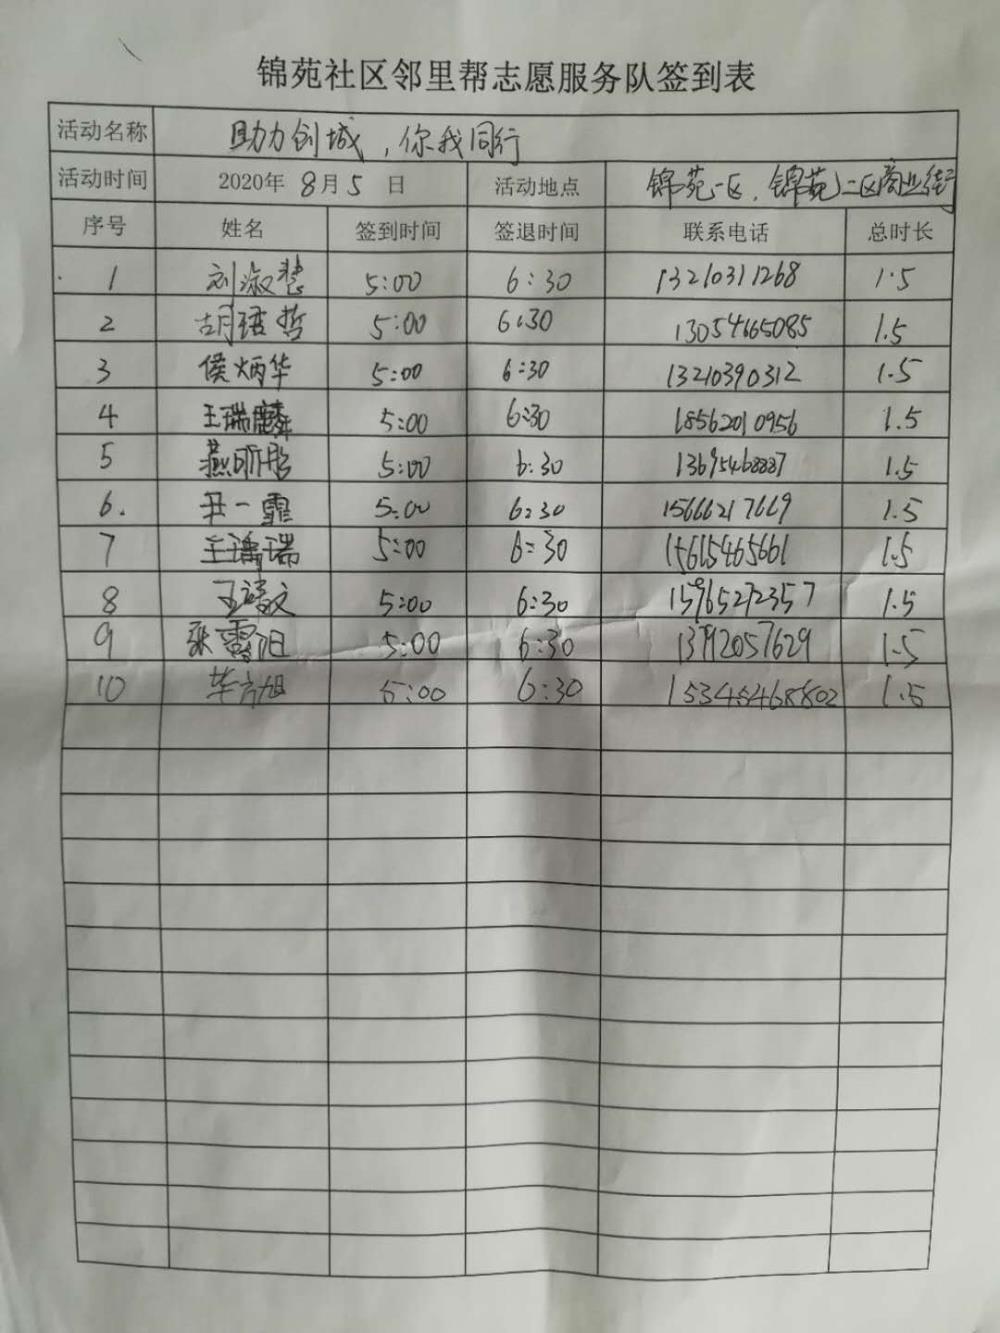 锦苑社区邻里帮志愿服务队签到表
活动名称 助力创城，你我同行
活动时间 2020年 8月5 日 活动地点 锦苑一区、锦苑二区商业街
序号 姓名 签到时间 签退时间 联系电话 总时长
1 刘淑慧 5:00 6:30 13210311268 1.5
2 胡 哲 5:00 6:30 13054665085 1.5
3 侯炳华 5:00 6:30 13210390312 1.5
4 王瑞麟 5:00 6:30 18562010956 1.5
5 燕昕彤 5:00 6:30 13695468887 1.5
6. 尹一霏 5:00 6:30 15666217669 1.5
7 王 瑞 5:00 6:30 15615465661 1.5
8 王 文 5:00 6:30 15965272357 1.5
9 张露阳 5:00 6:30 13792057629 1.5
10 毕方旭 5:00 6:30 1.5